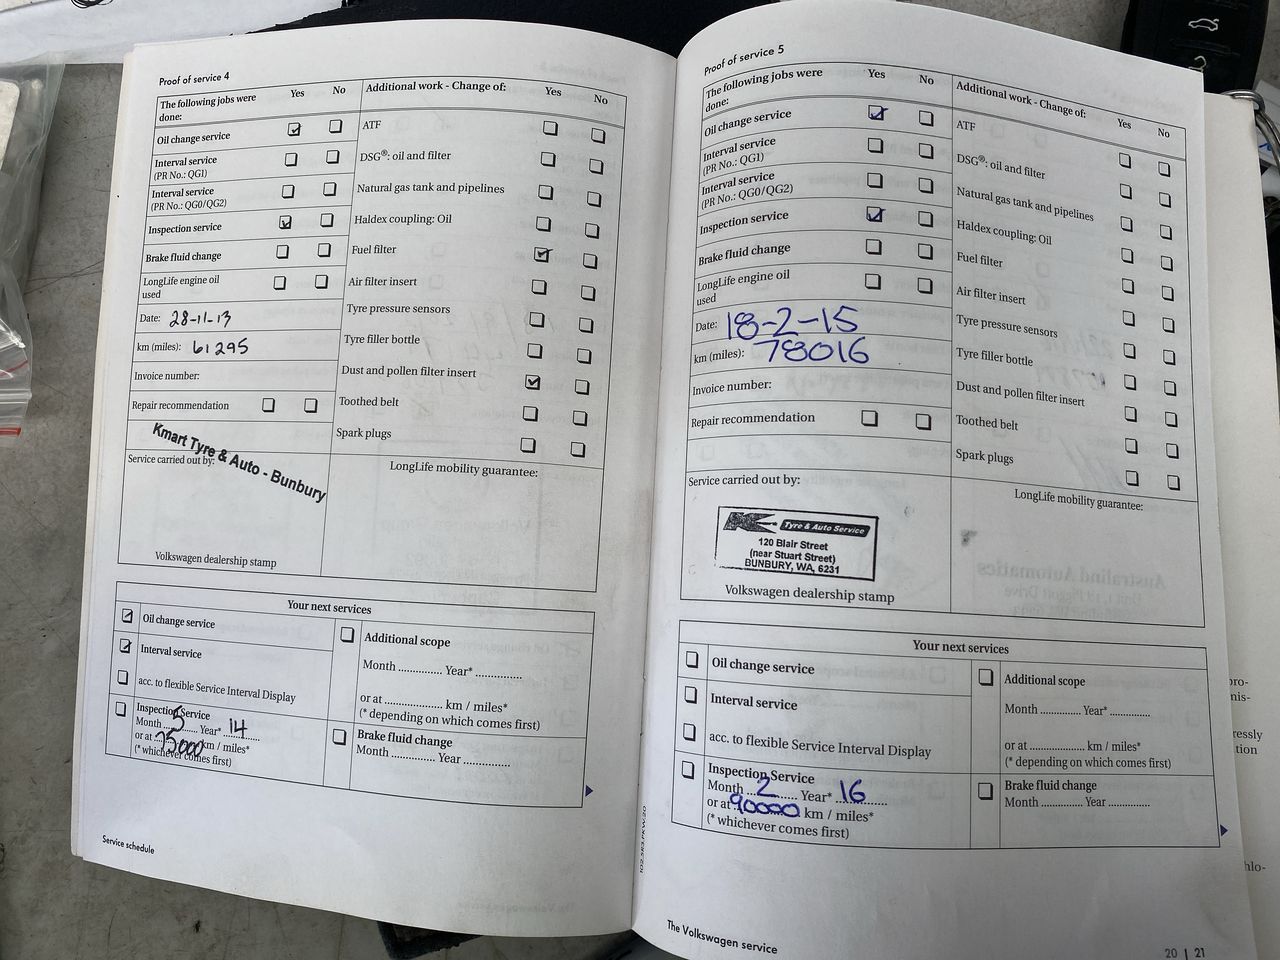 Proof of service 4
The following jobs were done: Yes No
Oil change service
Interval service
(PR No.: QG1)
Interval service
(PR No.: QG0/QG2)
Inspection service
Brake fluid change
LongLife engine oil
used
Date: 28-11-13
km (miles): 61295
Invoice number:
Repair recommendation
Kmart Tyre & Auto - Bunbury
Service carried out by:
Volkswagen dealership stamp
Additional work - Change of: Yes No
ATF
DSG®: oil and filter
Natural gas tank and pipelines
Haldex coupling: Oil
Fuel filter
Air filter insert
Tyre pressure sensors
Tyre filler bottle
Dust and pollen filter insert
Toothed belt
Spark plugs
LongLife mobility guarantee:
Your next services
Oil change service
Interval service
acc. to flexible Service Interval Display
Inspection Service
Month 5 Year* 14
or at 75000 km / miles*
(* whichever comes first)
Additional scope
Month .............. Year* ..............
or at .............. km / miles*
(* depending on which comes first)
Brake fluid change
Month .............. Year ..............
Service schedule
Proof of service 5
The following jobs were done: Yes No
Oil change service
Interval service
(PR No.: QG1)
Interval service
(PR No.: QG0/QG2)
Inspection service
Brake fluid change
LongLife engine oil
used
Date: 18-2-15
km (miles): 78016
Invoice number:
Repair recommendation
Service carried out by:
K Tyre & Auto Service
120 Blair Street
(near Stuart Street)
BUNBURY, WA, 6231
Volkswagen dealership stamp
Additional work - Change of: Yes No
ATF
DSG®: oil and filter
Natural gas tank and pipelines
Haldex coupling: Oil
Fuel filter
Air filter insert
Tyre pressure sensors
Tyre filler bottle
Dust and pollen filter insert
Toothed belt
Spark plugs
LongLife mobility guarantee:
Your next services
Oil change service
Interval service
acc. to flexible Service Interval Display
Inspection Service
Month 2 Year* 16
or at 90000 km / miles*
(* whichever comes first)
Additional scope
Month .............. Year* ..............
or at .............. km / miles*
(* depending on which comes first)
Brake fluid change
Month .............. Year ..............
The Volkswagen service
20 | 21